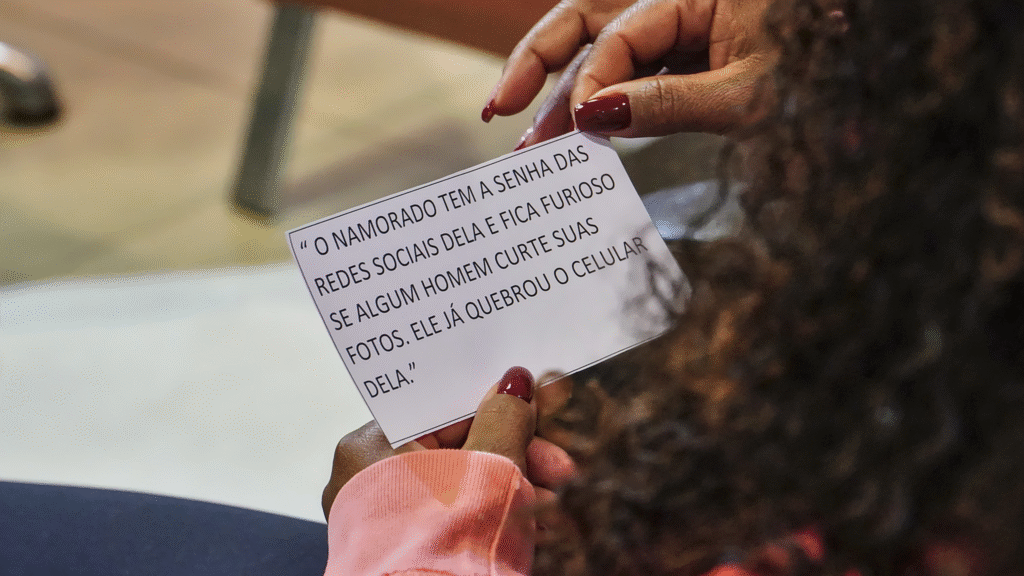 “ O NAMORADO TEM A SENHA DAS
REDES SOCIAIS DELA E FICA FURIOSO
SE ALGUM HOMEM CURTE SUAS
FOTOS. ELE JÁ QUEBROU O CELULAR
DELA.”